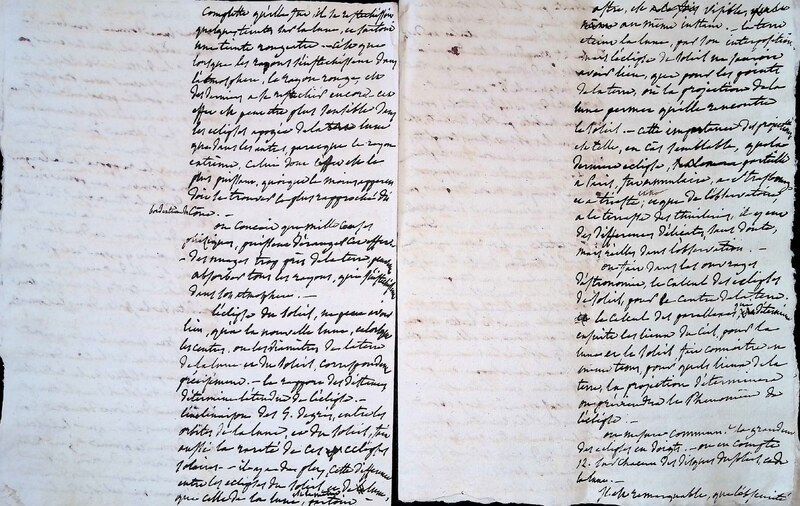 Complette qu'elle soit, il se réfléchissoit
quelques teintes sur la lune, ce sont
une teinte rougeatre —
lorsque les rayons réfléchissent dans
l'atmosphere, le rayon rouge, est
des derniers a se réfléchir encore, cet
effet est peut etre plus sensible dans
les eclipses apogée de la lune
que dans les autres, parceque le rayon
extreme, celui dont l'effet est le
plus puissant, quoique le moins apparent
doit se trouver le plus rapproché du
Cone. —
on conçoit que mille causes
phisiques, puissent déranger cet effet
— des nuages trop près de la terre
absorber tous les rayons, qui
dans son atmosphere. —
l'eclipse du soleil, ne peut avoir
lieu, qu'a la nouvelle lune, et lorsque
les centres, ou les diamètres de la terre
de la lune et du soleil, correspondent
précisement. — le rapport des distances
détermine l'étendue de l'eclipse. —
l'inclinaison des 5. degrés, entre les
orbites de la lune, et du soleil, fait
aussi la rareté de ces eclipses
solaires — il y a de plus, cette difference
entre les eclipses du soleil et de la lune,
que celle de la lune, partout
astre, est visible,
au même instant. — la terre
eteint la lune, par son interposition
mais l'eclipse de soleil ne pouvoit
avoir lieu, que pour les points
de la terre, où la projection de la
lune permet qu'elle rencontre
le soleil. — cette importance des projections
est telle, en cas semblable, que la
derniere eclipse, partielle
a Paris, fut annulaire, a
et que de l'observatoire,
a la terrasse des thuileries, il y eut
des differences délicates, sans doute,
mais réelles dans l'observation. —
on fait dans les ouvrages
d'astronomie, le calcul des eclipses
de soleil, pour le centre de la terre.
le calcul des parallaxes,
ensuite les lieux du ciel, pour la
lune et le soleil fait connoitre en
meme tems, pour quels lieux de la
terre, la projection déterminera
ou previendra le Phenomène de
l'eclipse. —
on mesure communt. la grandeur
des eclipses en doigts. — on en compte
12. sur chacun des disques du soleil et de
la lune. —
Il est remarquable, que l'obscurité